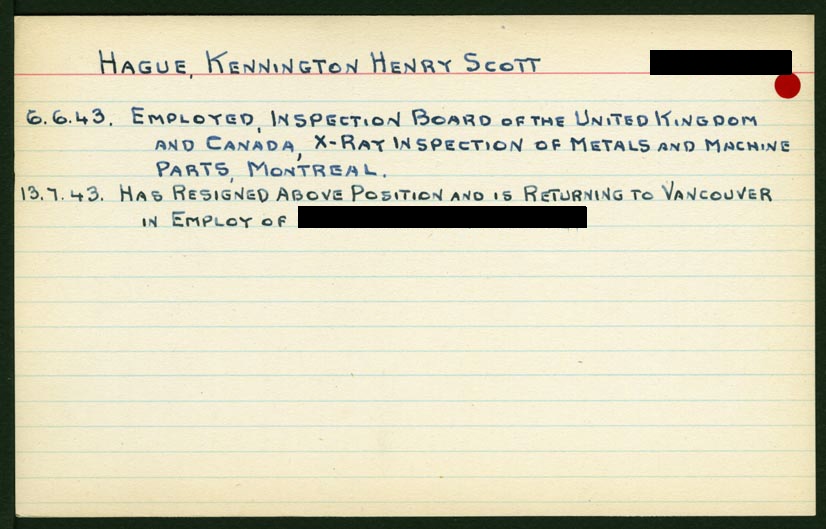 HAGUE, KENNINGTON HENRY SCOTT
6.6.43. EMPLOYED, INSPECTION BOARD OF THE UNITED KINGDOM
AND CANADA, X-RAY INSPECTION OF METALS AND MACHINE
PARTS, MONTREAL.
13.7.43. HAS RESIGNED ABOVE POSITION AND IS RETURNING TO VANCOUVER
IN EMPLOY OF